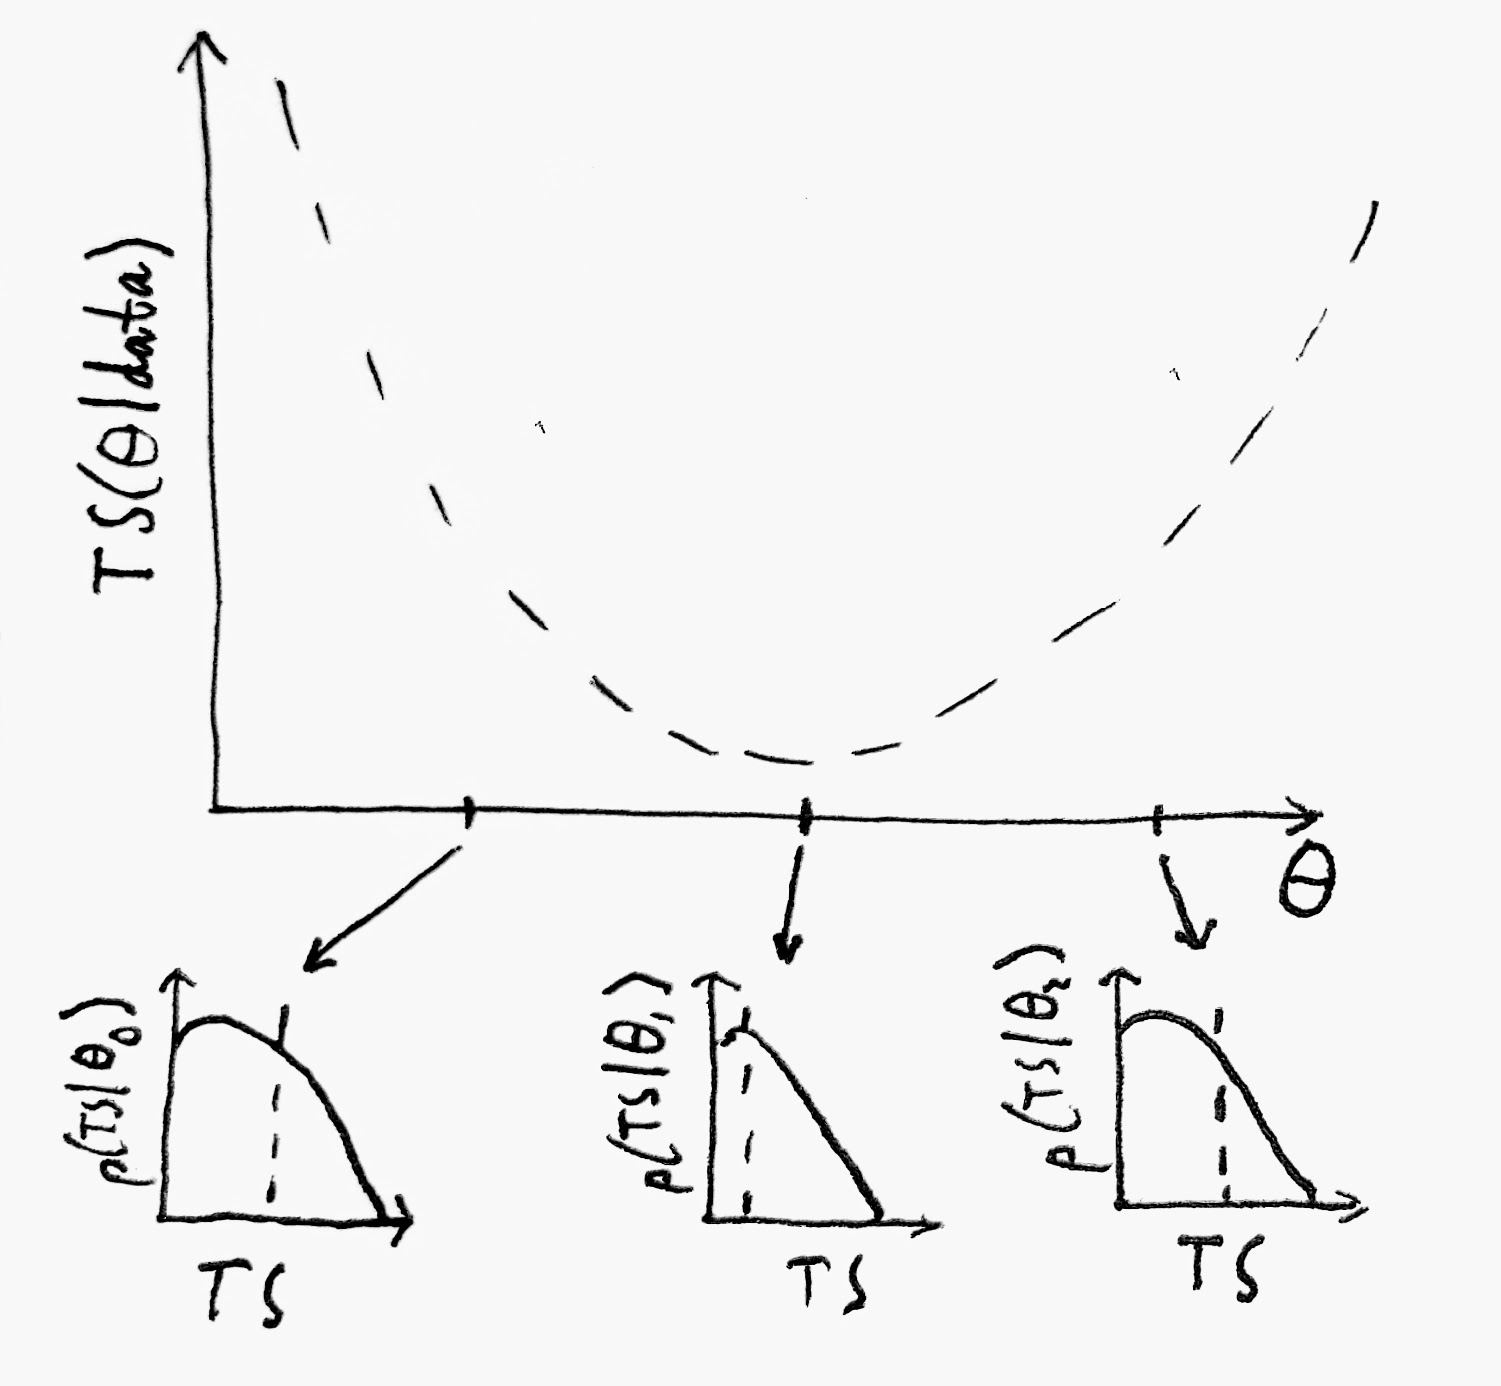 TS(θ|data)
θ
p(TS|θ₀)
TS
p(TS|θ₁)
TS
p(TS|θ₂)
TS